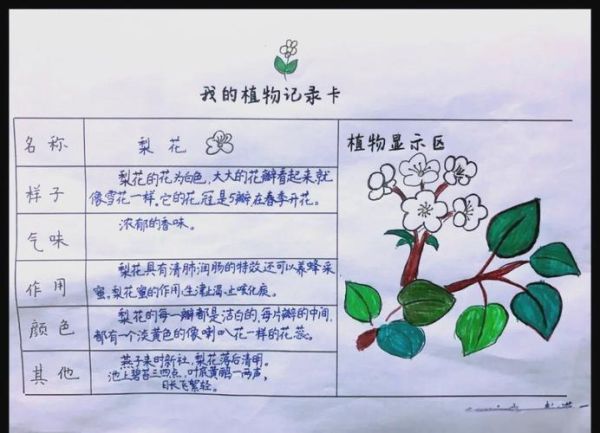 我的植物记录卡
名称 梨花
植物显示区
样子 梨花的花为白色,大大的花瓣看起来就
像雪花一样。它的花冠是5瓣在春季开花。
气味 浓郁的香味。
作用 梨花具有清肺润肠的特效还可以养蜂采
蜜。梨花蜜的作用:生津止渴、止咳化痰。
颜色 梨花的每一瓣都是洁白的,每片瓣的中间,
都有一个淡黄色的像喇叭花一样的花蕊。
其他 燕子来时新社,梨花落后清明。
池上碧苔三四点,叶底黄鹂一两声,
日长飞絮轻。